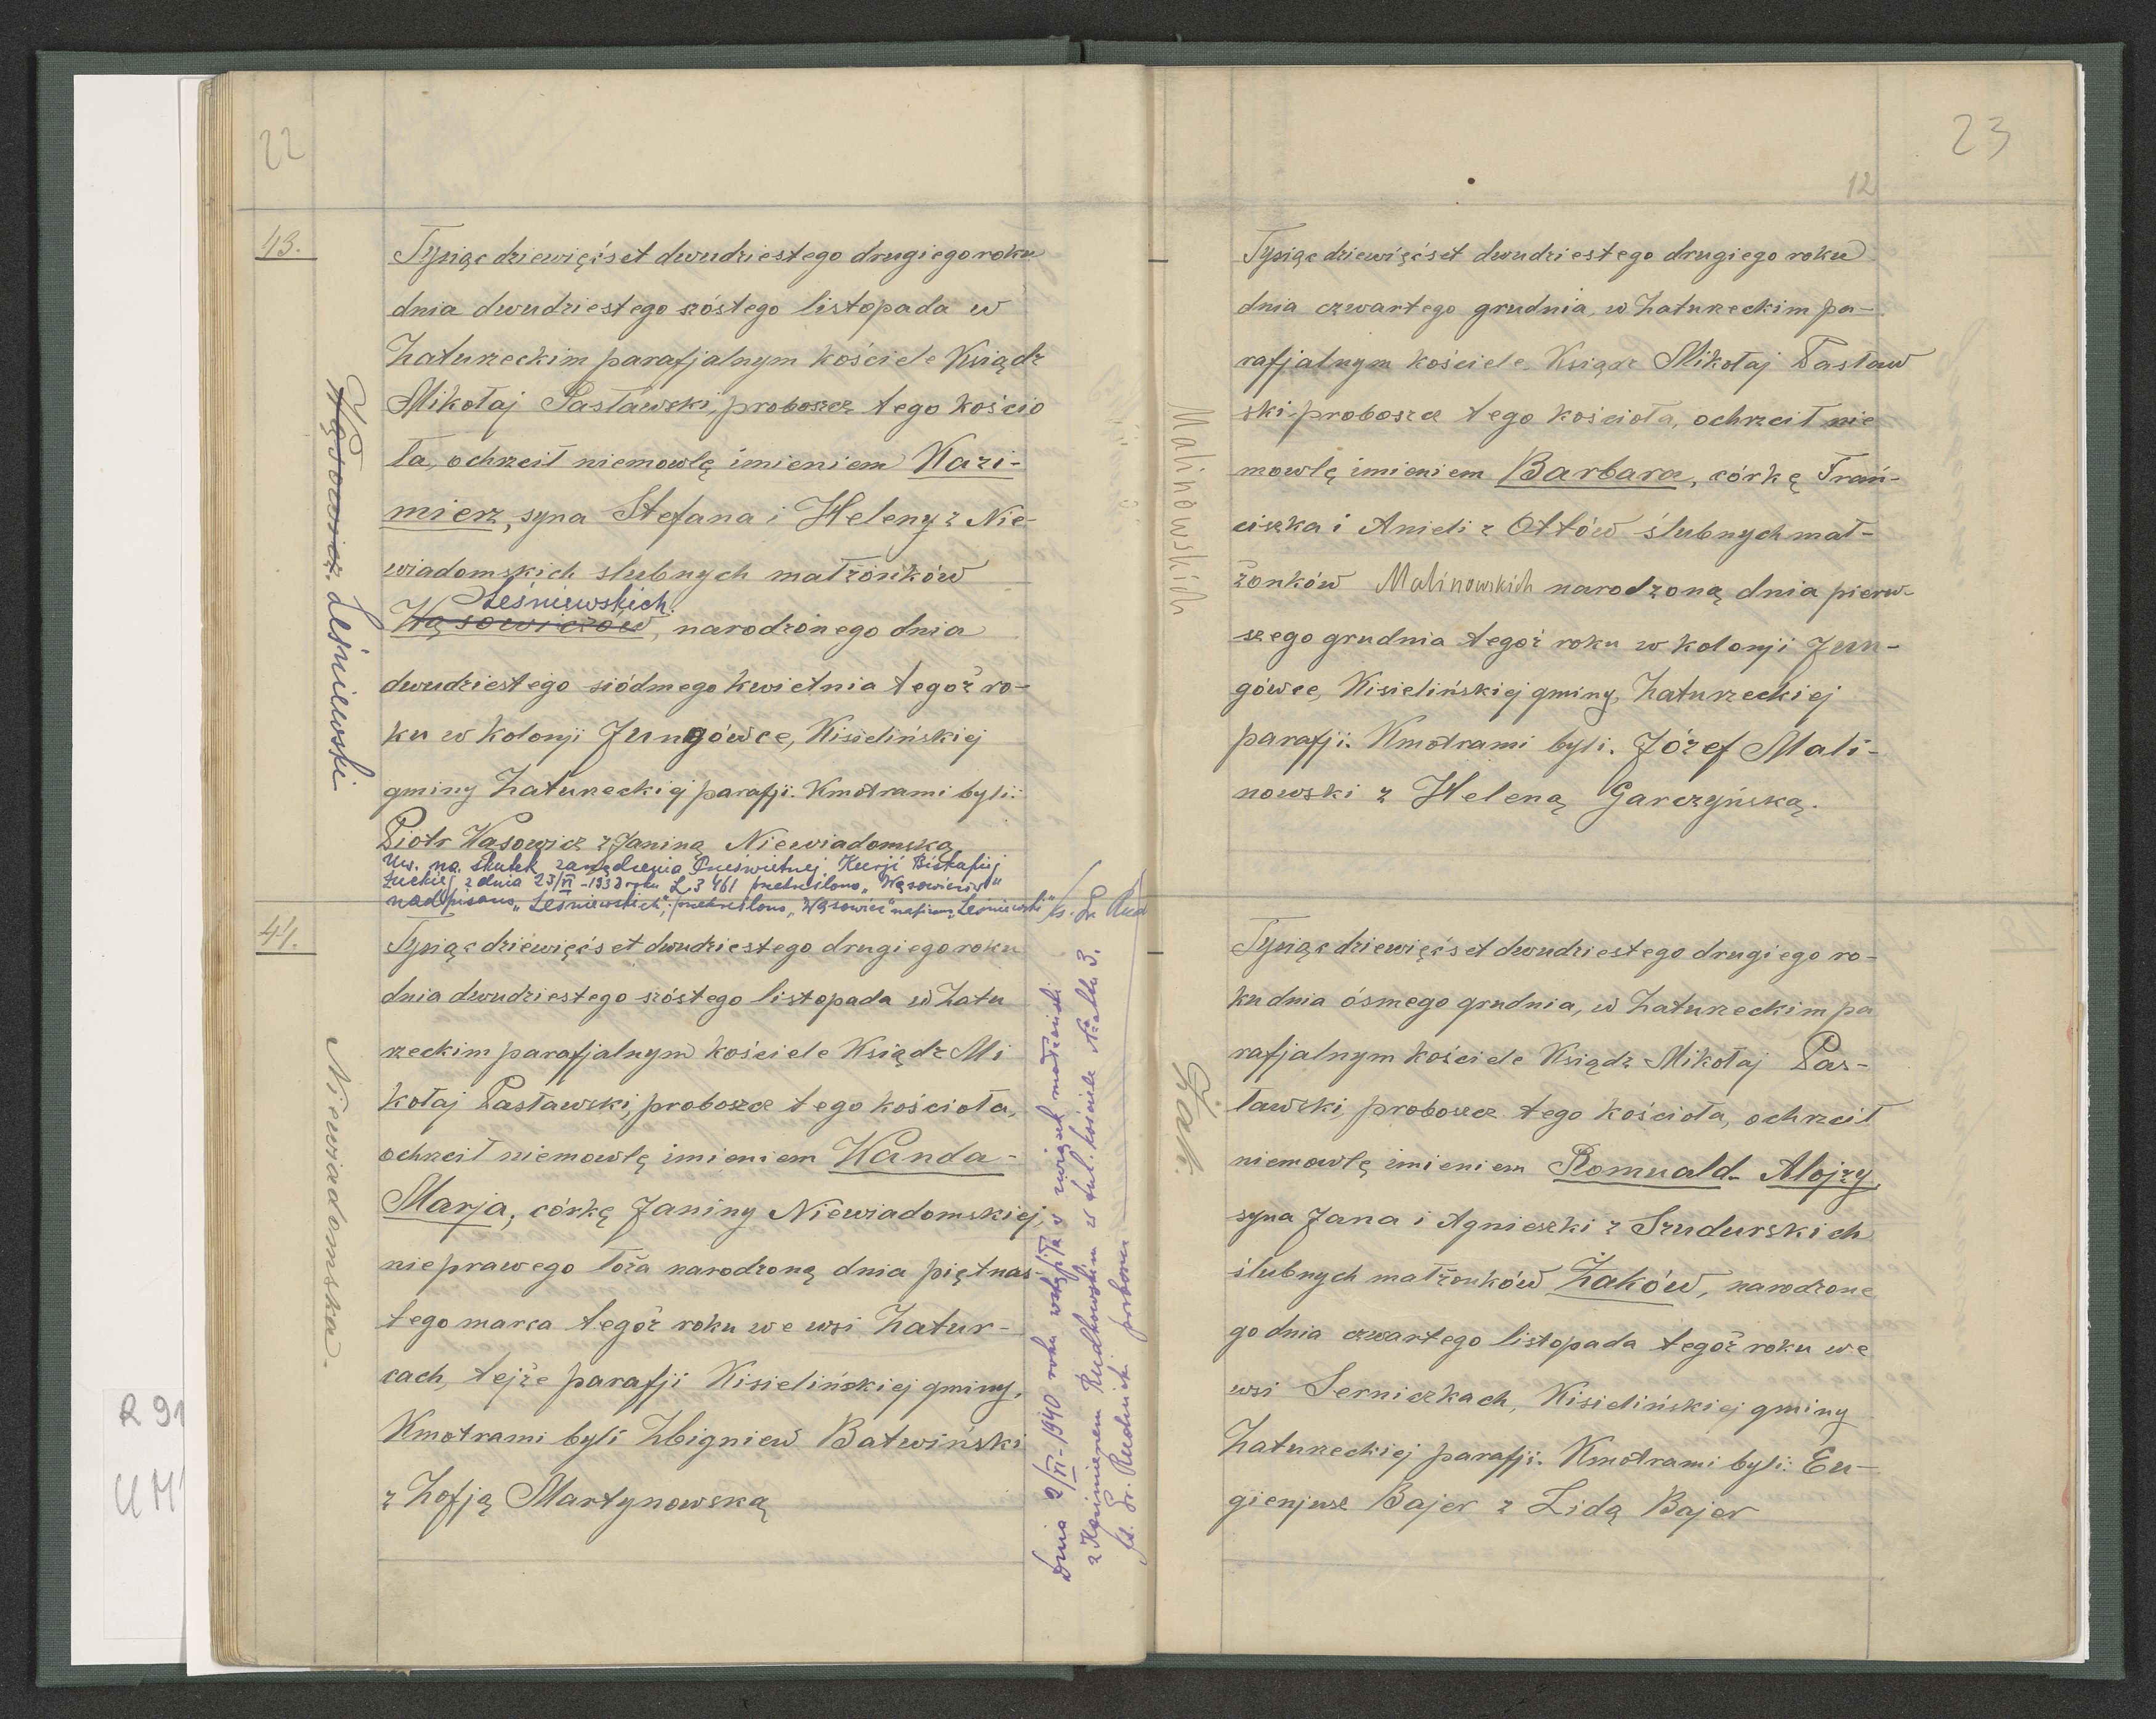 22
43.
Wąsowicz. Leśniewski
Tysiąc dziewięćset dwudziestego drugiego roku
dnia dwudziestego szóstego listopada w
Zaturzeckim parafjalnym kościele Ksiądz
Mikołaj Pasławski, proboszcz tego kościo
ła, ochrzcił niemowlę imieniem Kazi-
mierz, syna Stefana i Heleny z Nie-
wiadomskich ślubnych małżonków
Leśniewskich.
Wąsowiczów, narodzonego dnia
dwudziestego siódmego kwietnia tegoż ro-
ku w kolonji Jungówce, Kisielińskiej
gminy Zaturzeckiej parafji. Kmotrami byli:
Piotr Wąsowicz z Janiną Niewiadomską
Uw. na skutek zarządzenia Prześwietnej Kurji Biskupiej
Łuckiej z dnia 23/VI-1938 roku L. 3461 przekreślono "Wąsowiczów"
nadpisano "Leśniewskich", przekreślono "Wąsowicz" napisano "Leśniewski"
ks. Fr. Rud
44.
Niewiadomska.
Tysiąc dziewięćset dwudziestego drugiego roku
dnia dwudziestego szóstego listopada w Zatu
rzeckim parafjalnym kościele Ksiądz Mi
kołaj Pasławski, proboszcz tego kościoła,
ochrzcił niemowlę imieniem Wanda-
Marja, córkę Janiny Niewiadomskiej,
nieprawego łoża narodzoną dnia piętnas-
tego marca tegoż roku we wsi Zatur-
cach, tejże parafji Kisielińskiej gminy.
Kmotrami byli Zbigniew Batwiński
z Zofją Martynowską
Dnia 2/VI-1940 roku wstąpiła w związek małżeński
z Kazimierzem Rudkowskim w tut. kościele № aktu 3.
ks. Fr. Rudnicki proboszcz
23
12
Malinowskich
Tysiąc dziewięćset dwudziestego drugiego roku
dnia czwartego grudnia, w Zaturzeckim pa-
rafjalnym kościele Ksiądz Mikołaj Pasław
ski, proboszcz tego kościoła, ochrzcił nie
mowlę imieniem Barbara, córkę Fran-
ciszka i Anieli z Ottów ślubnych mał-
żonków Malinowskich narodzoną dnia pierw-
szego grudnia tegoż roku w kolonji Jun-
gówce, Kisielińskiej gminy, Zaturzeckiej
parafji. Kmotrami byli. Józef Mali-
nowski z Heleną Garczyńską.
Żak.
Tysiąc dziewięćset dwudziestego drugiego ro-
ku dnia ósmego grudnia, w Zaturzeckim pa
rafjalnym kościele Ksiądz Mikołaj Pas-
ławski, proboszcz tego kościoła, ochrzcił
niemowlę imieniem Romuald-Alojzy,
syna Jana i Agnieszki z Szudurskich
ślubnych małżonków Żaków, narodzone
go dnia czwartego listopada tegoż roku we
wsi Serniczkach, Kisielińskiej gminy
Zaturzeckiej parafji. Kmotrami byli: Eu-
gienjusz Bajer z Lidą Bajer